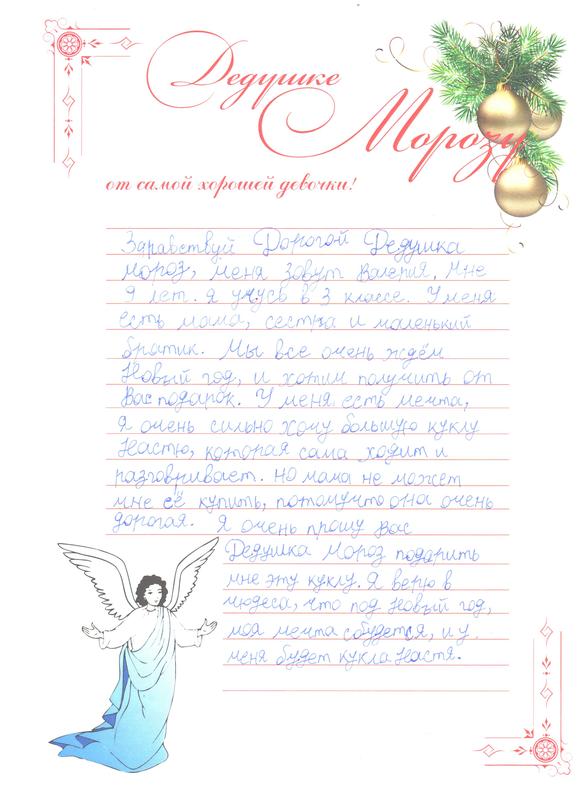 Дедушке
Морозу
от самой хорошей девочки!
Здравствуй Дорогой Дедушка
мороз, меня зовут Валерия. Мне
9 лет. я учусь в 3 классе. У меня
есть мама, сестра и маленький
братик. Мы все очень ждём
Новый год, и хотим получить от
Вас подарок. У меня есть мечта,
я очень сильно хочу большую куклу
Настю, которая сама ходит и
разговривает. но мама не может
мне её купить, потомучто она очень
дорогая. Я очень прошу Вас
Дедушка Мороз подарить
мне эту куклу. Я верю в
чюдеса, что под Новый год,
моя мечта сбудется, и у
меня будет кукла Настя.